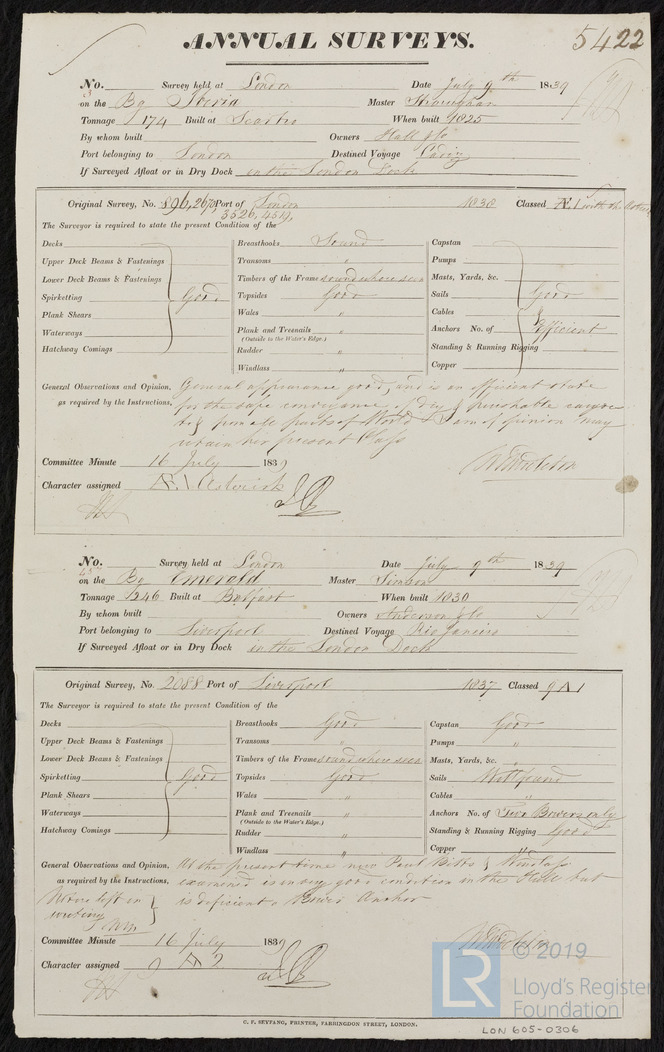 ANNUAL SURVEYS.
5422
No. Survey held at London Date July 9th 1839
on the Bg Iberia Master
Tonnage 174 Built at When built 1825
By whom built Owners Hall & Co
Port belonging to London Destined Voyage Cadiz
If Surveyed Afloat or in Dry Dock in the London Dock
Original Survey, No. Port of London 1838 Classed Æ1 with the
3526, 4514,
The Surveyor is required to state the present Condition of the
Decks Breasthooks Sound Capstan
Upper Deck Beams & Fastenings Transoms " Pumps
Lower Deck Beams & Fastenings Timbers of the Frame sound where seen Masts, Yards, &c.
Spirketting Good Topsides Good Sails Good
Plank Shears Wales " Cables
Waterways Plank and Treenails " Anchors No. of Efficient
(Outside to the Water's Edge.)
Hatchway Comings Rudder " Standing & Running Rigging
Windlass " Copper
General Observations and Opinion, General appearance good, and is an efficient state
as required by the Instructions, for the safe conveyance of dry & perishable cargoes
to & from all parts of World & I am of opinion may
retain her present Class
Committee Minute 16 July 1839
Character assigned Æ1 Asterisk
No. Survey held at London Date July 9th 1839
on the Bg Emerald Master Simson
Tonnage 246 Built at Belfast When built 1830
By whom built Owners Anderson & Co
Port belonging to Liverpool Destined Voyage Rio Janeiro
If Surveyed Afloat or in Dry Dock in the London Dock
Original Survey, No. 2088 Port of Liverpool 1837 Classed 9 A 1
The Surveyor is required to state the present Condition of the
Decks Breasthooks Good Capstan Good
Upper Deck Beams & Fastenings Transoms " Pumps "
Lower Deck Beams & Fastenings Timbers of the Frame sound where seen Masts, Yards, &c. "
Spirketting Good Topsides Good Sails Well found
Plank Shears Wales " Cables "
Waterways Plank and Treenails " Anchors No. of Two Bowers only
(Outside to the Water's Edge.)
Hatchway Comings Rudder " Standing & Running Rigging Good
Windlass " Copper "
General Observations and Opinion, At the present time new Paul Bitts & Windlass
as required by the Instructions, examined is in very good condition in the Hull but
is deficient a Bower Anchor
Notice left in
writing
Committee Minute 16 July 1839
Character assigned A
C. F. SEYFANG, PRINTER, FARRINGDON STREET, LONDON.
LR © 2019
Lloyd's Register
Foundation
LON 605-0306